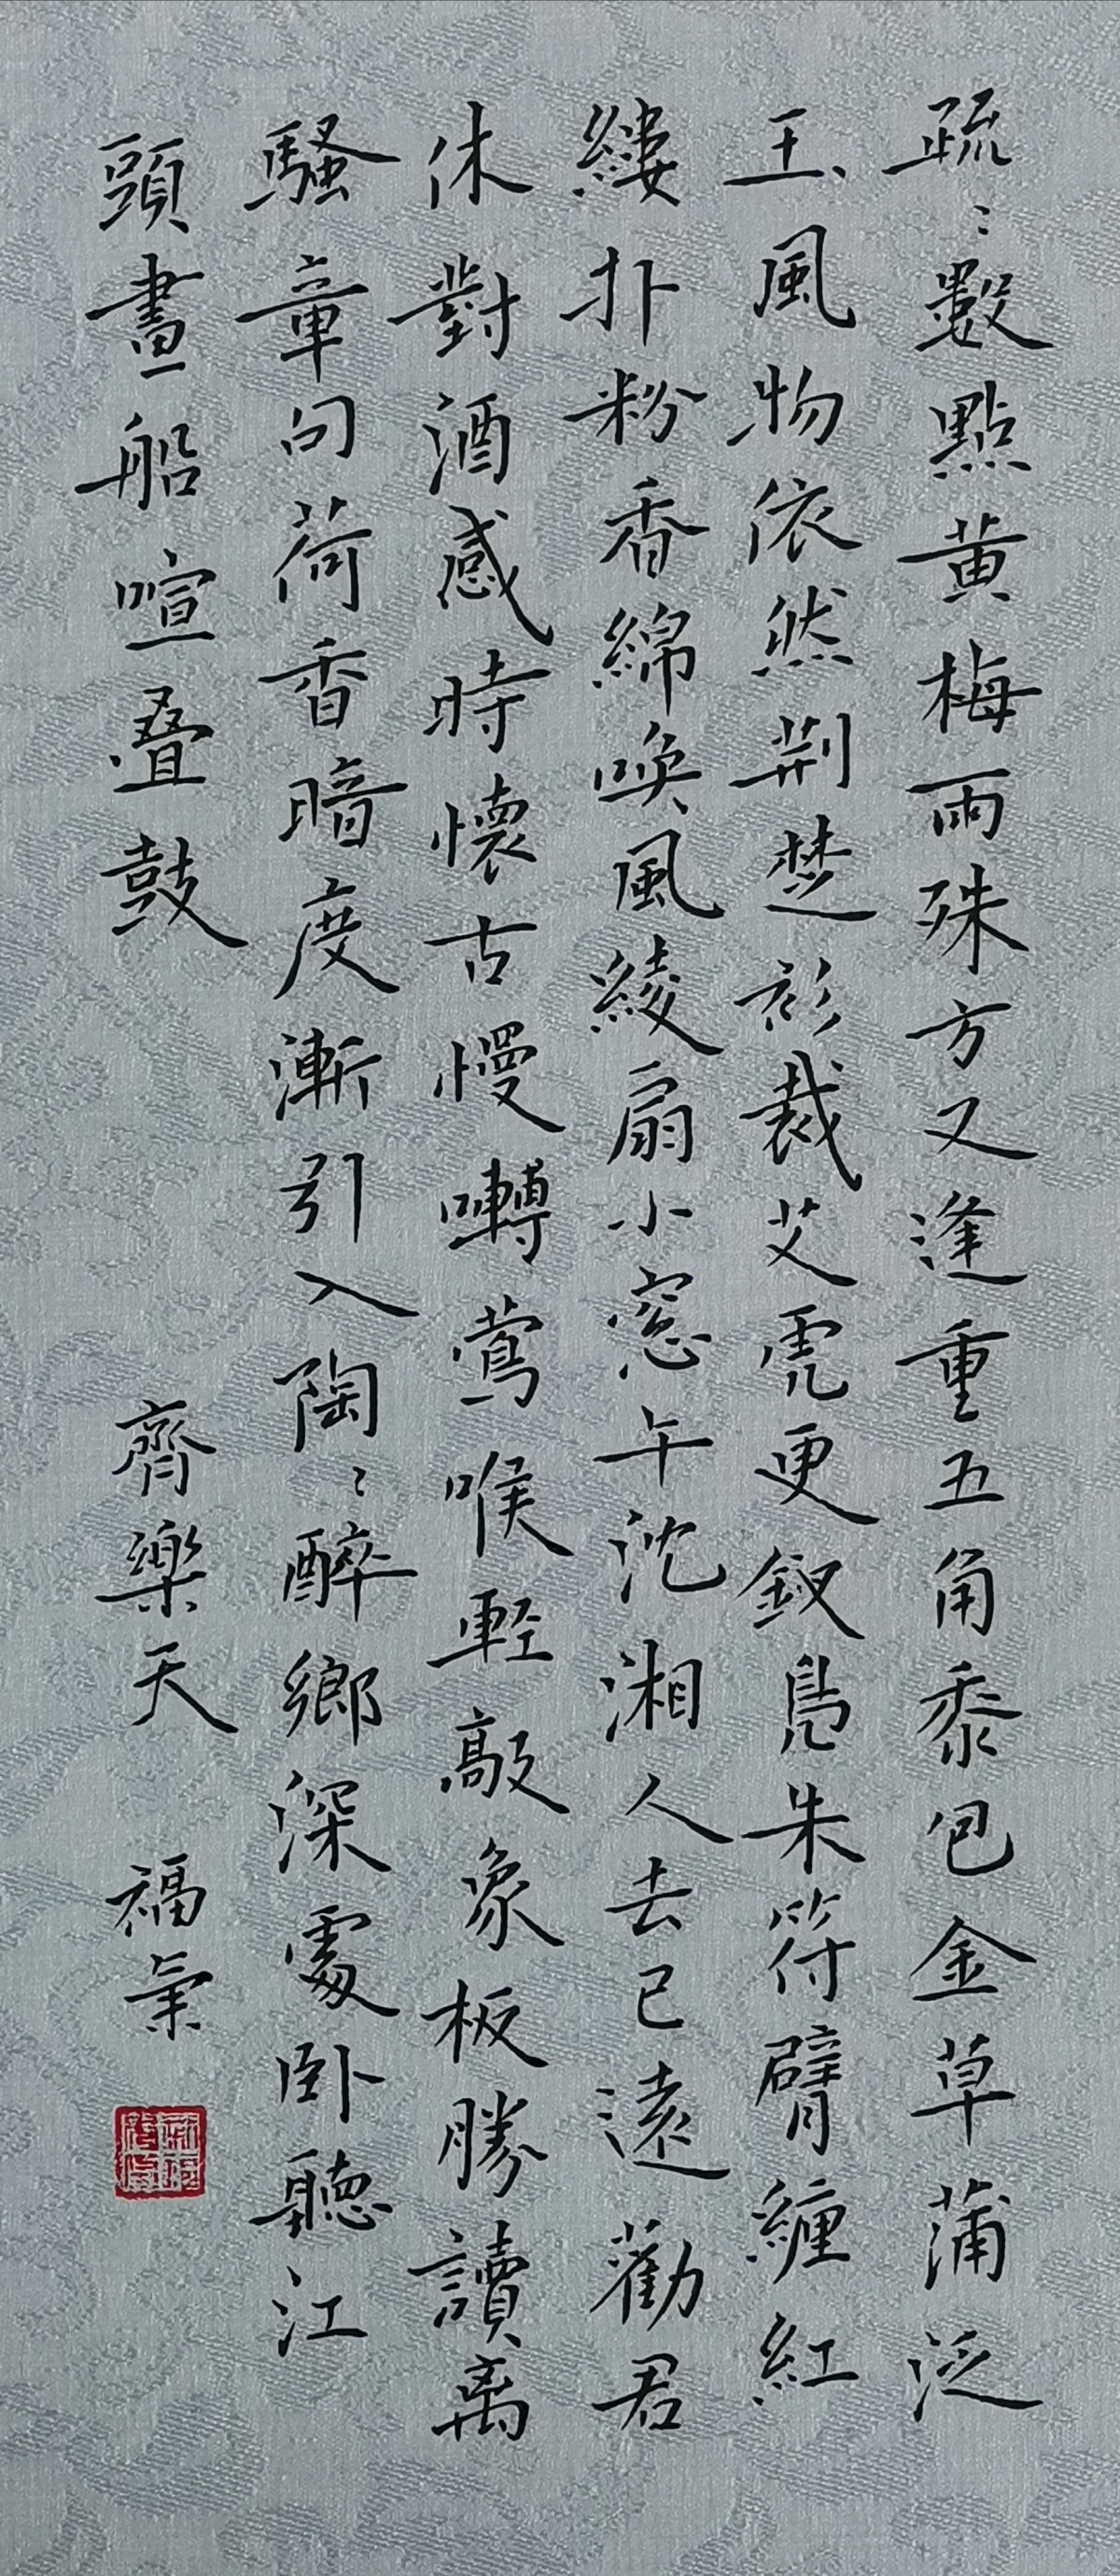 疏〻數點黄梅雨殊方又逢重五角黍包金草蒲泛
玉風物依然荆楚衫裁艾虎更釵鳧朱符臂纏紅
縷扑粉香綿喚風綾扇小窓午沈湘人去已遠勸君
休對酒感時懷古慢囀鶯喉輕敲象板勝讀离
騷章句荷香暗度漸引入陶〻醉鄉深處卧聽江
頭畫船喧疊鼓
齊樂天
福氣